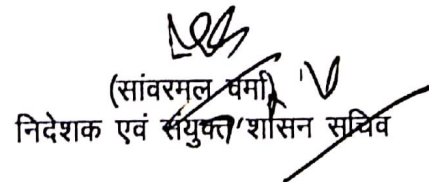 (सांवरमल वर्मा)
निदेशक एवं संयुक्त शासन सचिव